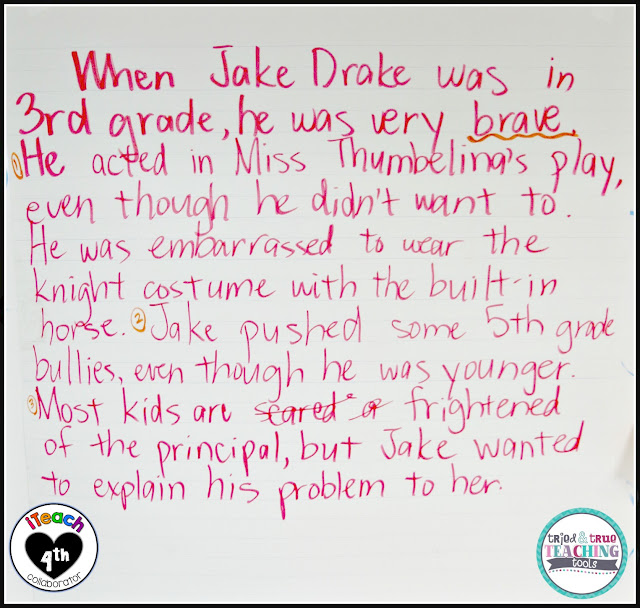 When Jake Drake was in
3rd grade, he was very brave.
①He acted in Miss Thumbelina's play,
even though he didn't want to.
He was embarrassed to wear the
knight costume with the built-in
horse. ②Jake pushed some 5th grade
bullies, even though he was younger.
③Most kids are scared of frightened
of the principal, but Jake wanted
to explain his problem to her.
iTeach
4th
collaborator
tried & true
TEACHING
tools